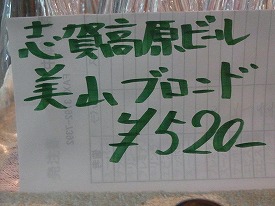 志賀高原ビル
美山ブロンド
¥520-